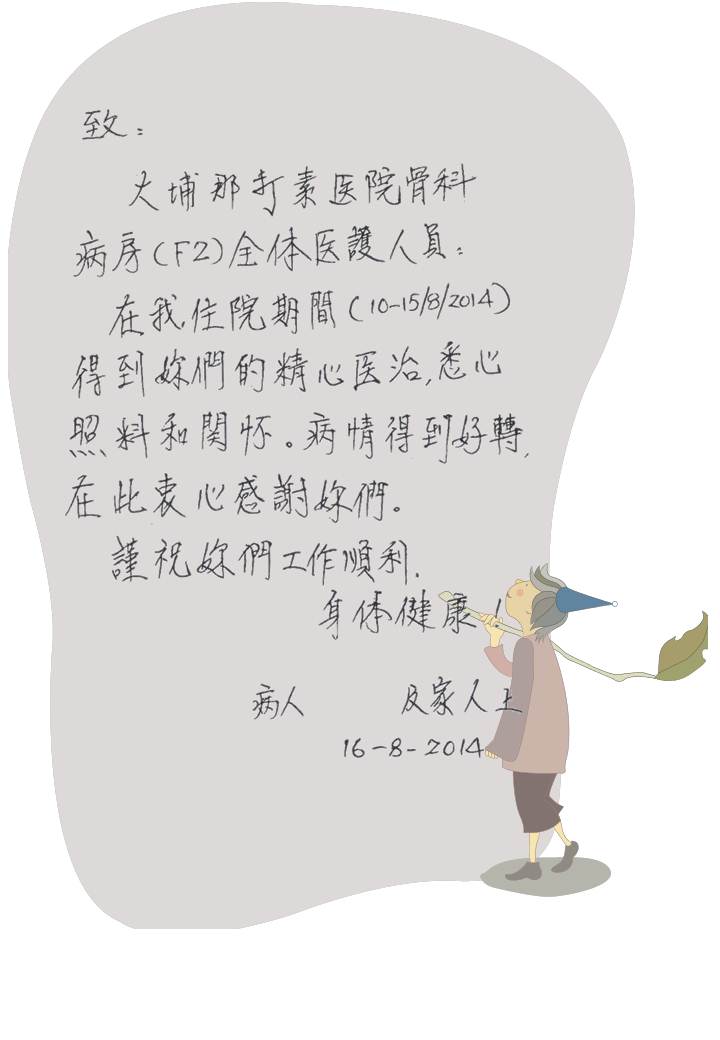 致：
大埔那打素医院骨科
病房(F2)全体医護人員：
在我住院期間(10-15/8/2014)
得到妳們的精心医治,悉心
照料和関怀。病情得到好轉,
在此衷心感謝妳們。
謹祝妳們工作順利.
身体健康！
病人 及家人上
16-8-2014